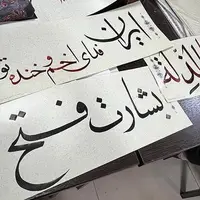 ایران فدای اخم و خنده تو
الذلة
بشارت فتح